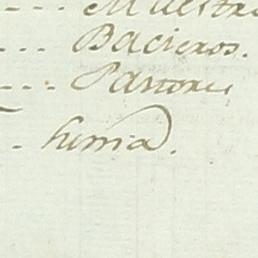 --- Maestro
--- Bacieros.
--- Pastores
- Suma.